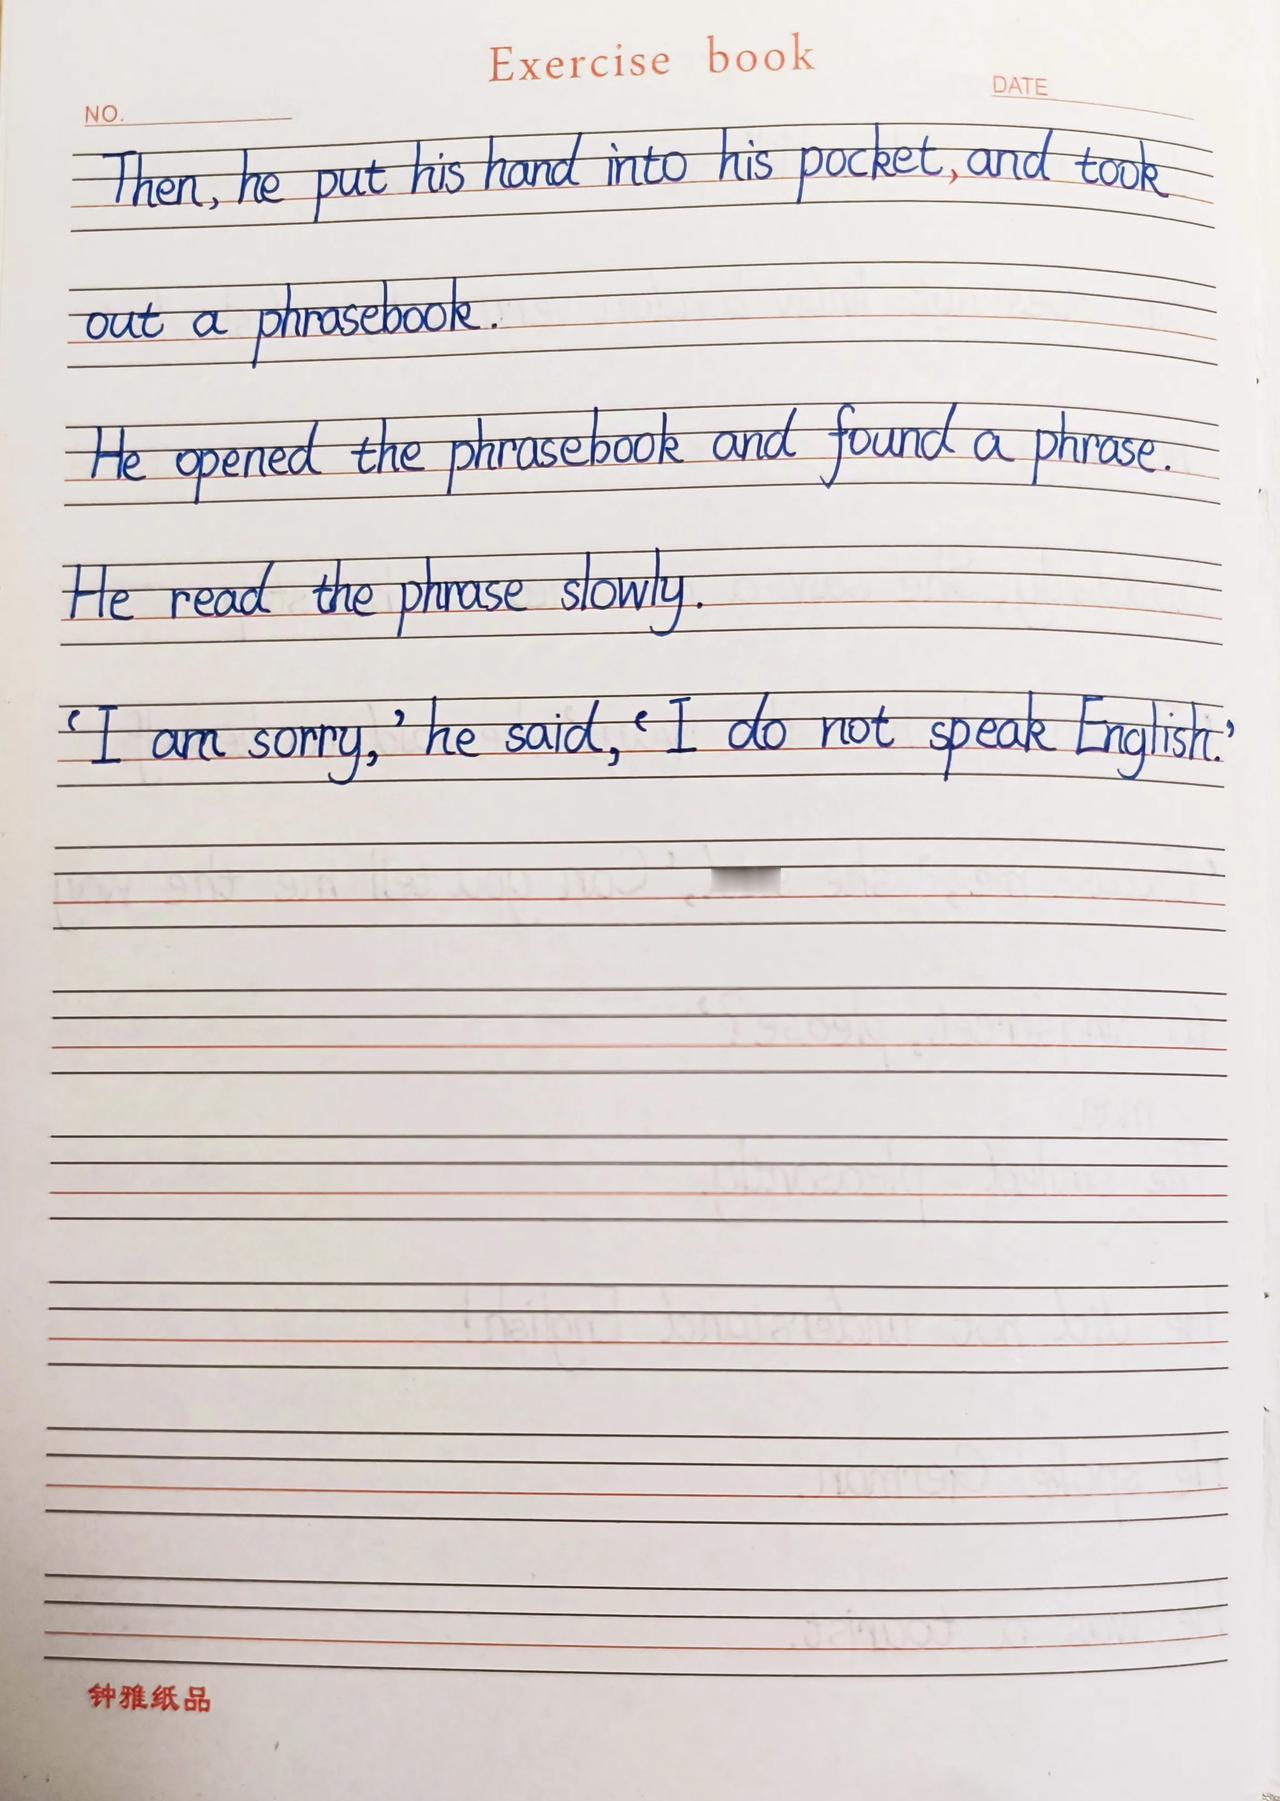 Exercise book
NO.
DATE
Then, he put his hand into his pocket, and took
out a phrasebook.
He opened the phrasebook and found a phrase.
He read the phrase slowly.
‘I am sorry,’ he said, ‘I do not speak English.’
钟雅纸品